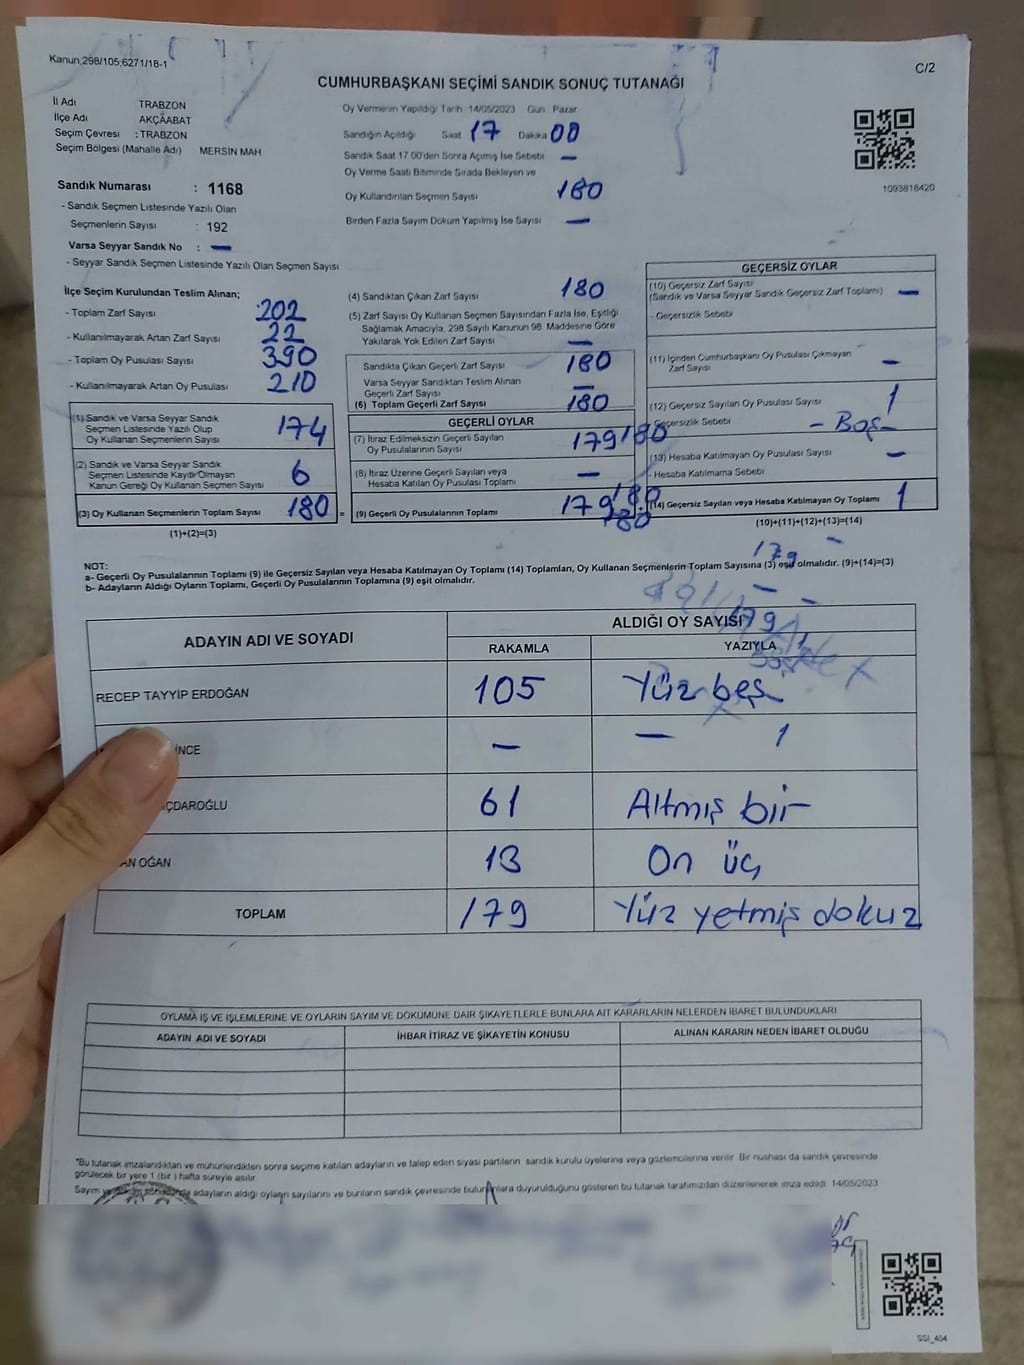 Kanun;298/105;6271/18-1
C/2
CUMHURBAŞKANI SEÇİMİ SANDIK SONUÇ TUTANAĞI
İl Adı TRABZON
İlçe Adı AKÇAABAT
Seçim Çevresi : TRABZON
Seçim Bölgesi (Mahalle Adı) MERSİN MAH
Sandık Numarası : 1168
- Sandık Seçmen Listesinde Yazılı Olan
Seçmenlerin Sayısı : 192
Varsa Seyyar Sandık No : –
- Seyyar Sandık Seçmen Listesinde Yazılı Olan Seçmen Sayısı
Oy Vermenin Yapıldığı Tarih 14/05/2023 Gün Pazar
Sandığın Açıldığı Saat 17 Dakika 00
Sandık Saat 17 00'den Sonra Açımış İse Sebebi –
Oy Verme Saati Bitiminde Sırada Bekleyen ve
Oy Kullandırılan Seçmen Sayısı 180
Birden Fazla Sayım Döküm Yapılmış İse Sayısı –
1093818420
İlçe Seçim Kurulundan Teslim Alınan;
- Toplam Zarf Sayısı 202
- Kullanılmayarak Artan Zarf Sayısı 22
- Toplam Oy Pusulası Sayısı 390
- Kullanılmayarak Artan Oy Pusulası 210
(1) Sandık ve Varsa Seyyar Sandık
Seçmen Listesinde Yazılı Olup
Oy Kullanan Seçmenlerin Sayısı 174
(2) Sandık ve Varsa Seyyar Sandık
Seçmen Listesinde Kayıtlı Olmayan
Kanun Gereği Oy Kullanan Seçmen Sayısı 6
(3) Oy Kullanan Seçmenlerin Toplam Sayısı 180 =
(1)+(2)=(3)
(4) Sandıktan Çıkan Zarf Sayısı 180
(5) Zarf Sayısı Oy Kullanan Seçmen Sayısından Fazla İse, Eşitliği
Sağlamak Amacıyla, 298 Sayılı Kanunun 98 Maddesine Göre
Yakılarak Yok Edilen Zarf Sayısı –
Sandıkta Çıkan Geçerli Zarf Sayısı 180
Varsa Seyyar Sandıktan Teslim Alınan
Geçerli Zarf Sayısı –
(6) Toplam Geçerli Zarf Sayısı 180
GEÇERLİ OYLAR
(7) İtiraz Edilmeksizin Geçerli Sayılan
Oy Pusulasının Sayısı 179 180
(8) İtiraz Üzerine Geçerli Sayılan veya
Hesaba Katılan Oy Pusulası Toplamı –
(9) Geçerli Oy Pusulalarının Toplamı 179 180
180
GEÇERSİZ OYLAR
(10) Geçersiz Zarf Sayısı
(Sandık ve Varsa Seyyar Sandık Geçersiz Zarf Toplamı) –
- Geçersizlik Sebebi
(11) İçinden Cumhurbaşkanı Oy Pusulası Çıkmayan
Zarf Sayısı –
(12) Geçersiz Sayılan Oy Pusulası Sayısı 1
Geçersizlik Sebebi – Boş –
(13) Hesaba Katılmayan Oy Pusulası Sayısı –
- Hesaba Katılmama Sebebi
(14) Geçersiz Sayılan veya Hesaba Katılmayan Oy Toplamı 1
(10)+(11)+(12)+(13)=(14)
179 –
NOT:
a- Geçerli Oy Pusulalarının Toplamı (9) ile Geçersiz Sayılan veya Hesaba Katılmayan Oy Toplamı (14) Toplamları, Oy Kullanan Seçmenlerin Toplam Sayısına (3) eşit olmalıdır. (9)+(14)=(3)
b- Adayların Aldığı Oyların Toplamı, Geçerli Oy Pusulalarının Toplamına (9) eşit olmalıdır.
ADAYIN ADI VE SOYADI
ALDIĞI OY SAYISI 179
RAKAMLA YAZIYLA
RECEP TAYYİP ERDOĞAN 105 Yüz beş
İNCE – – 1
ÇDAROĞLU 61 Altmış bir
AN OĞAN 13 On üç
TOPLAM 179 Yüz yetmiş dokuz
OYLAMA İŞ VE İŞLEMLERİNE VE OYLARIN SAYIM VE DÖKÜMÜNE DAİR ŞİKAYETLERLE BUNLARA AİT KARARLARIN NELERDEN İBARET BULUNDUKLARI
ADAYIN ADI VE SOYADI İHBAR İTİRAZ VE ŞİKAYETİN KONUSU ALINAN KARARIN NEDEN İBARET OLDUĞU
*Bu tutanak imzalandıktan ve mühürlendikten sonra seçime katılan adayların ve talep eden siyasi partilerin sandık kurulu üyelerine veya gözlemcilerine verilir. Bir nüshası da sandık çevresinde
görülecek bir yere 1 (bir) hafta süreyle asılır
Sayım adayların aldığı oyların sayılarını ve bunların sandık çevresinde bulunanlara duyurulduğunu gösteren bu tutanak tarafımızdan düzenlenerek imza edildi. 14/05/2023
SSI_404